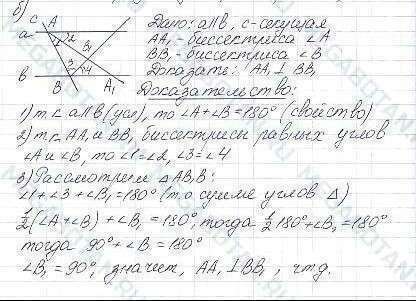 б)
с А
а 1 2 В₁
3 4
в В А₁
Дано: а∥в, с-секущая
АА₁-биссектриса ∠А
ВВ₁-биссектриса ∠В
Доказать: АА₁⊥ВВ₁
Доказательство:
1) т.к. а∥в (усл), то ∠А+∠В=180° (свойство)
2) т.к. АА₁ и ВВ₁ биссектрисы равных углов
∠А и ∠В, то ∠1=∠2, ∠3=∠4
3) Рассмотрим △АВ₁В:
∠1+∠3+∠В₁=180° (т.о сумме углов △)
½(∠А+∠В)+∠В₁=180°, тогда ½180°+∠В₁=180°
тогда 90°+∠В=180°
∠В₁=90°, значит, АА₁⊥ВВ₁, чтд.